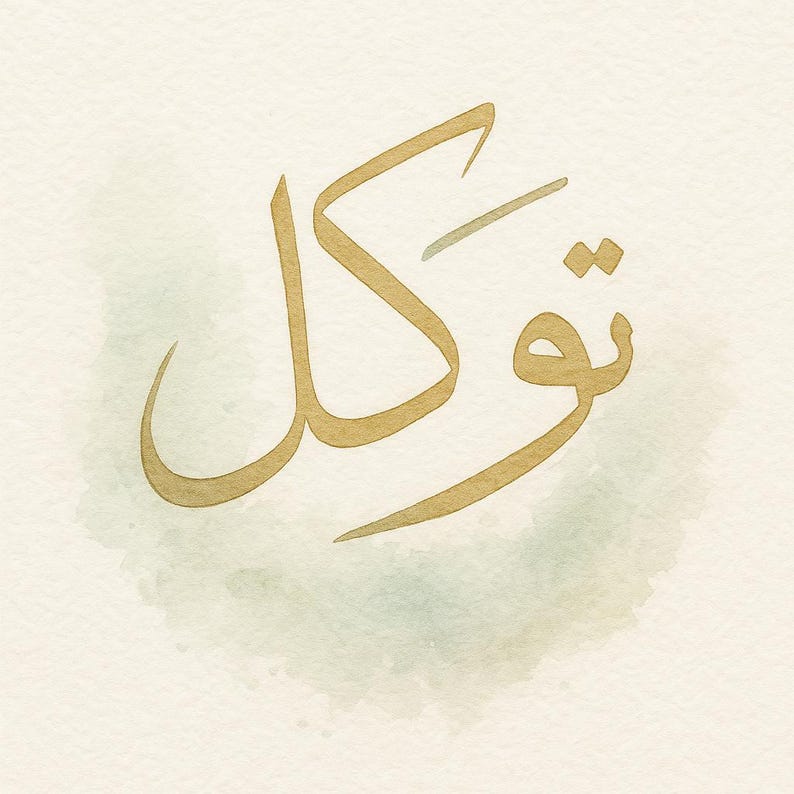 توكل